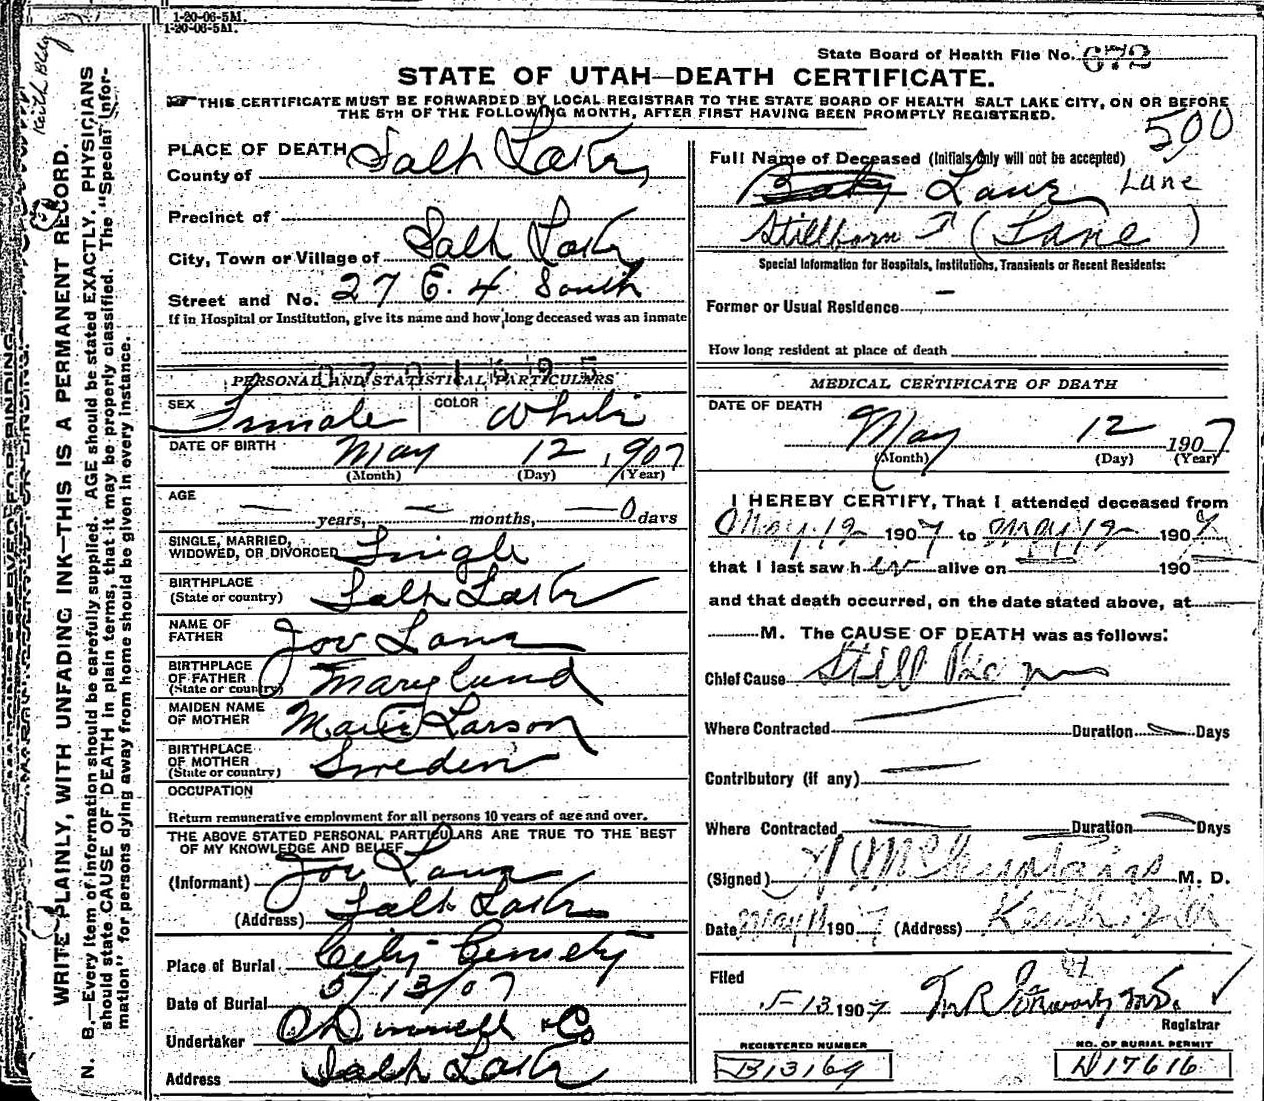 1-20-06-5M.
1-20-06-5M.
State Board of Health File No. 672
STATE OF UTAH—DEATH CERTIFICATE.
THIS CERTIFICATE MUST BE FORWARDED BY LOCAL REGISTRAR TO THE STATE BOARD OF HEALTH SALT LAKE CITY, ON OR BEFORE
THE 5TH OF THE FOLLOWING MONTH, AFTER FIRST HAVING BEEN PROMPTLY REGISTERED.
500
Keith Bldg
WRITE PLAINLY, WITH UNFADING INK—THIS IS A PERMANENT RECORD.
N. B.—Every item of information should be carefully supplied. AGE should be stated EXACTLY. PHYSICIANS
should state CAUSE OF DEATH in plain terms, that it may be properly classified. The "Special Infor-
mation" for persons dying away from home should be given in every instance.
PLACE OF DEATH
County of Salt Lake
Precinct of
City, Town or Village of Salt Lake
Street and No. 27 E. 4 South
If in Hospital or Institution, give its name and how long deceased was an inmate
PERSONAL AND STATISTICAL PARTICULARS
SEX Female COLOR White
DATE OF BIRTH May 12 1907
(Month) (Day) (Year)
AGE
— years, — months, — 0 days
SINGLE, MARRIED,
WIDOWED, OR DIVORCED Single
BIRTHPLACE
(State or country) Salt Lake
NAME OF
FATHER Joe Lane
BIRTHPLACE
OF FATHER
(State or country) Maryland
MAIDEN NAME
OF MOTHER Marie Larson
BIRTHPLACE
OF MOTHER
(State or country) Sweden
OCCUPATION
Return remunerative employment for all persons 10 years of age and over.
THE ABOVE STATED PERSONAL PARTICULARS ARE TRUE TO THE BEST
OF MY KNOWLEDGE AND BELIEF
(Informant) Joe Lane
(Address) Salt Lake
Place of Burial City Cemetery
Date of Burial 5/13/07
Undertaker O'Donnell & Co
Address Salt Lake
Full Name of Deceased (Initials only will not be accepted)
Baby Lane Lane
Stillborn (Lane)
Special Information for Hospitals, Institutions, Transients or Recent Residents:
Former or Usual Residence —
How long resident at place of death
MEDICAL CERTIFICATE OF DEATH
DATE OF DEATH
May 12 1907
(Month) (Day) (Year)
I HEREBY CERTIFY, That I attended deceased from
May 12 1907 to May 12 1907
that I last saw her alive on — 190
and that death occurred, on the date stated above, at
M. The CAUSE OF DEATH was as follows:
Chief Cause Still Born
Where Contracted — Duration — Days
Contributory (if any) —
Where Contracted — Duration — Days
(Signed) M. D.
Date May 1907 (Address) Keith
Filed
5-13 1907
Registrar
REGISTERED NUMBER
B13169
NO. OF BURIAL PERMIT
D17616